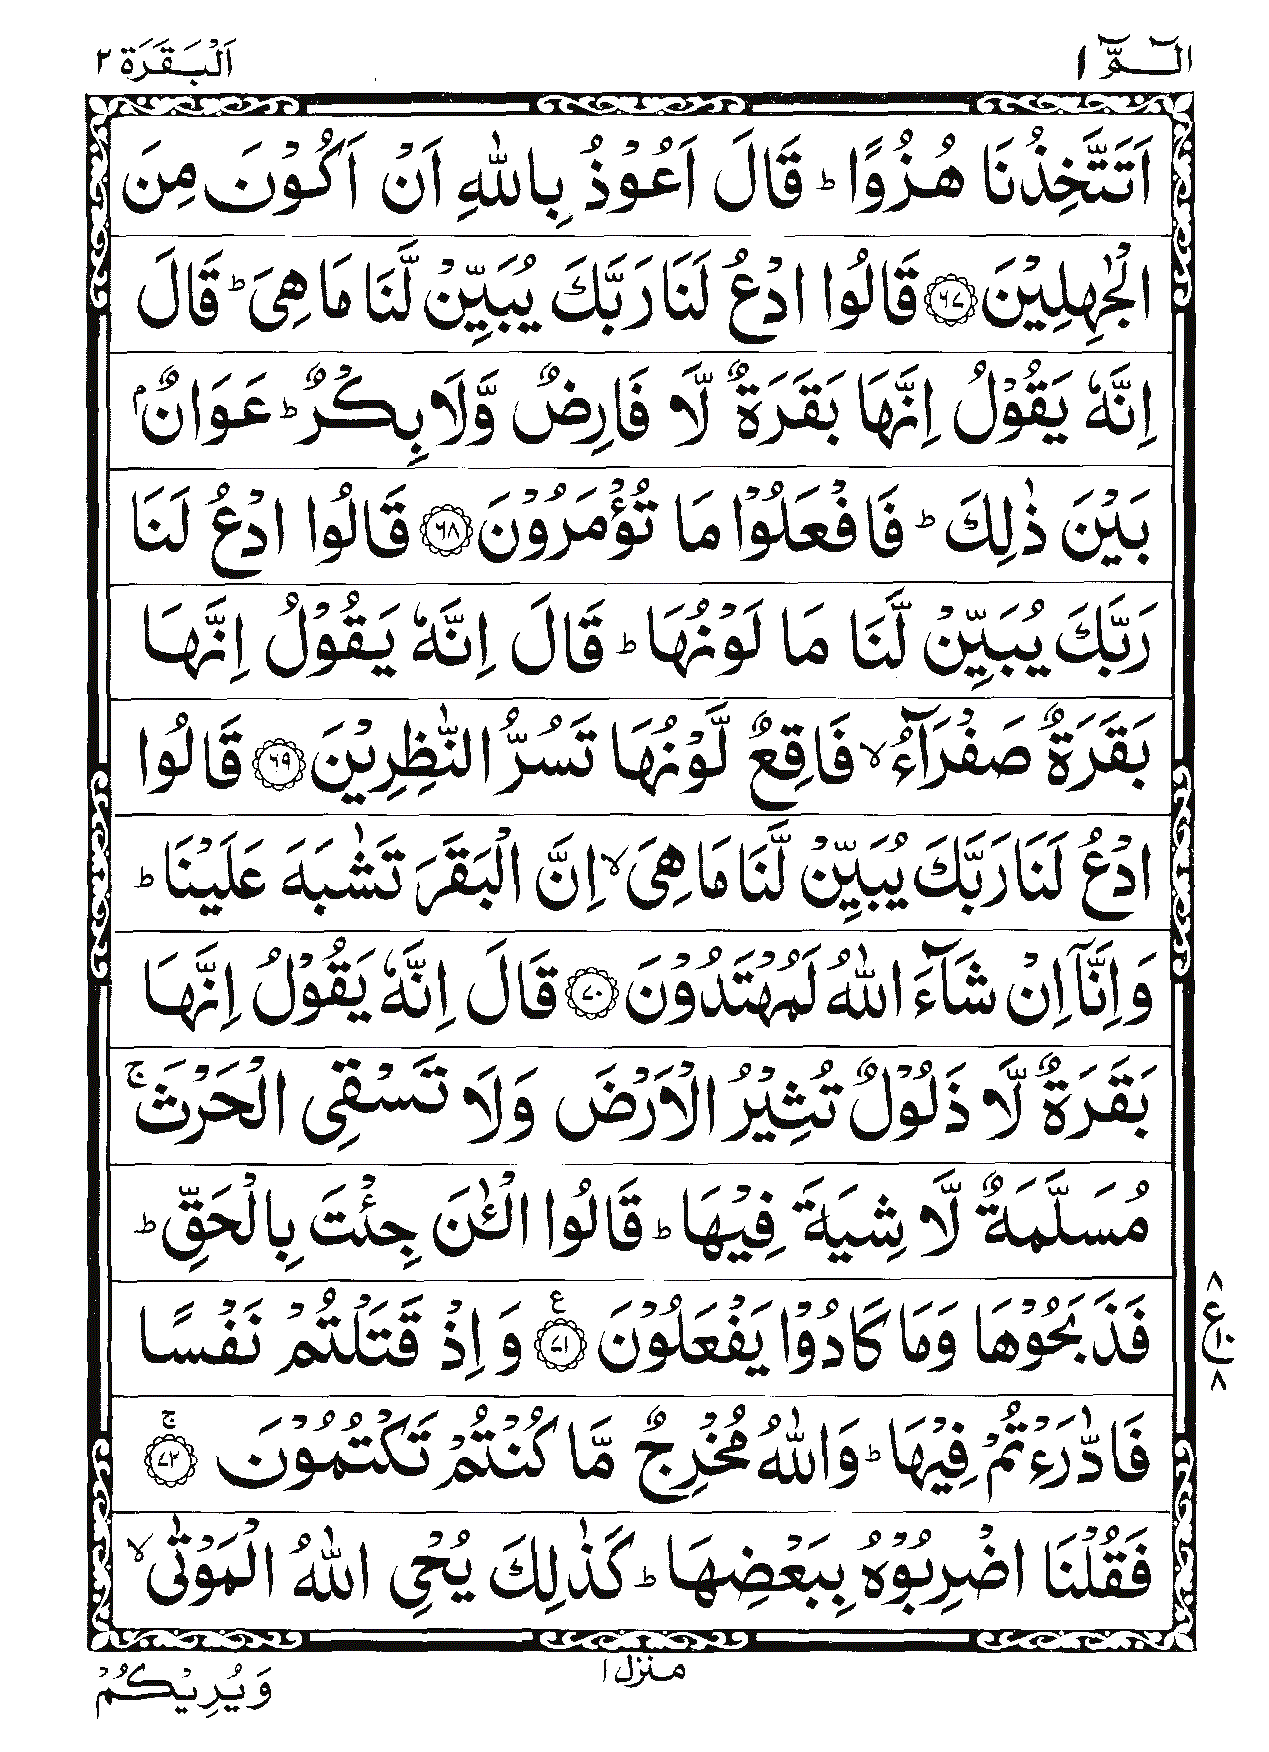 الٓـمّٓ ١
اَلْبَقَرَة ٢
اَتَتَّخِذُنَا هُزُوًا ؕ قَالَ اَعُوْذُ بِاللّٰهِ اَنْ اَكُوْنَ مِنَ
الْجٰهِلِيْنَ ۝٦٧ قَالُوا ادْعُ لَنَا رَبَّكَ يُبَيِّنْ لَّنَا مَا هِىَ ؕ قَالَ
اِنَّهٗ يَقُوْلُ اِنَّهَا بَقَرَةٌ لَّا فَارِضٌ وَّلَا بِكْرٌ ؕ عَوَانٌۢ
بَيْنَ ذٰلِكَ ؕ فَافْعَلُوْا مَا تُؤْمَرُوْنَ ۝٦٨ قَالُوا ادْعُ لَنَا
رَبَّكَ يُبَيِّنْ لَّنَا مَا لَوْنُهَا ؕ قَالَ اِنَّهٗ يَقُوْلُ اِنَّهَا
بَقَرَةٌ صَفْرَآءُ ۙ فَاقِعٌ لَّوْنُهَا تَسُرُّ النّٰظِرِيْنَ ۝٦٩ قَالُوا
ادْعُ لَنَا رَبَّكَ يُبَيِّنْ لَّنَا مَا هِىَ ۙ اِنَّ الْبَقَرَ تَشٰبَهَ عَلَيْنَا ؕ
وَاِنَّاۤ اِنْ شَآءَ اللّٰهُ لَمُهْتَدُوْنَ ۝٧٠ قَالَ اِنَّهٗ يَقُوْلُ اِنَّهَا
بَقَرَةٌ لَّا ذَلُوْلٌ تُثِيْرُ الْاَرْضَ وَلَا تَسْقِى الْحَرْثَ ۚ
مُسَلَّمَةٌ لَّا شِيَةَ فِيْهَا ؕ قَالُوا الْـٰٔنَ جِئْتَ بِالْحَقِّ ؕ
فَذَبَحُوْهَا وَمَا كَادُوْا يَفْعَلُوْنَ ۝٧١ ع وَاِذْ قَتَلْتُمْ نَفْسًا
٨ ع ١٠ ٨
فَادّٰرَءْتُمْ فِيْهَا ؕ وَاللّٰهُ مُخْرِجٌ مَّا كُنْتُمْ تَكْتُمُوْنَ ۝٧٢ ۚ
فَقُلْنَا اضْرِبُوْهُ بِبَعْضِهَا ؕ كَذٰلِكَ يُحْىِ اللّٰهُ الْمَوْتٰى ۙ
منزل ١
وَيُرِيْكُمْ